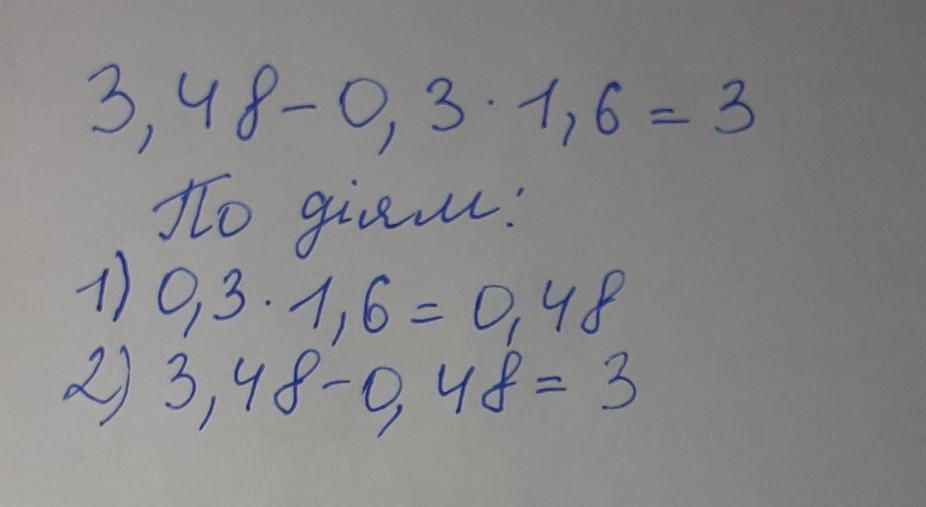 3,48-0,3·1,6=3
По діям:
1) 0,3·1,6=0,48
2) 3,48-0,48=3